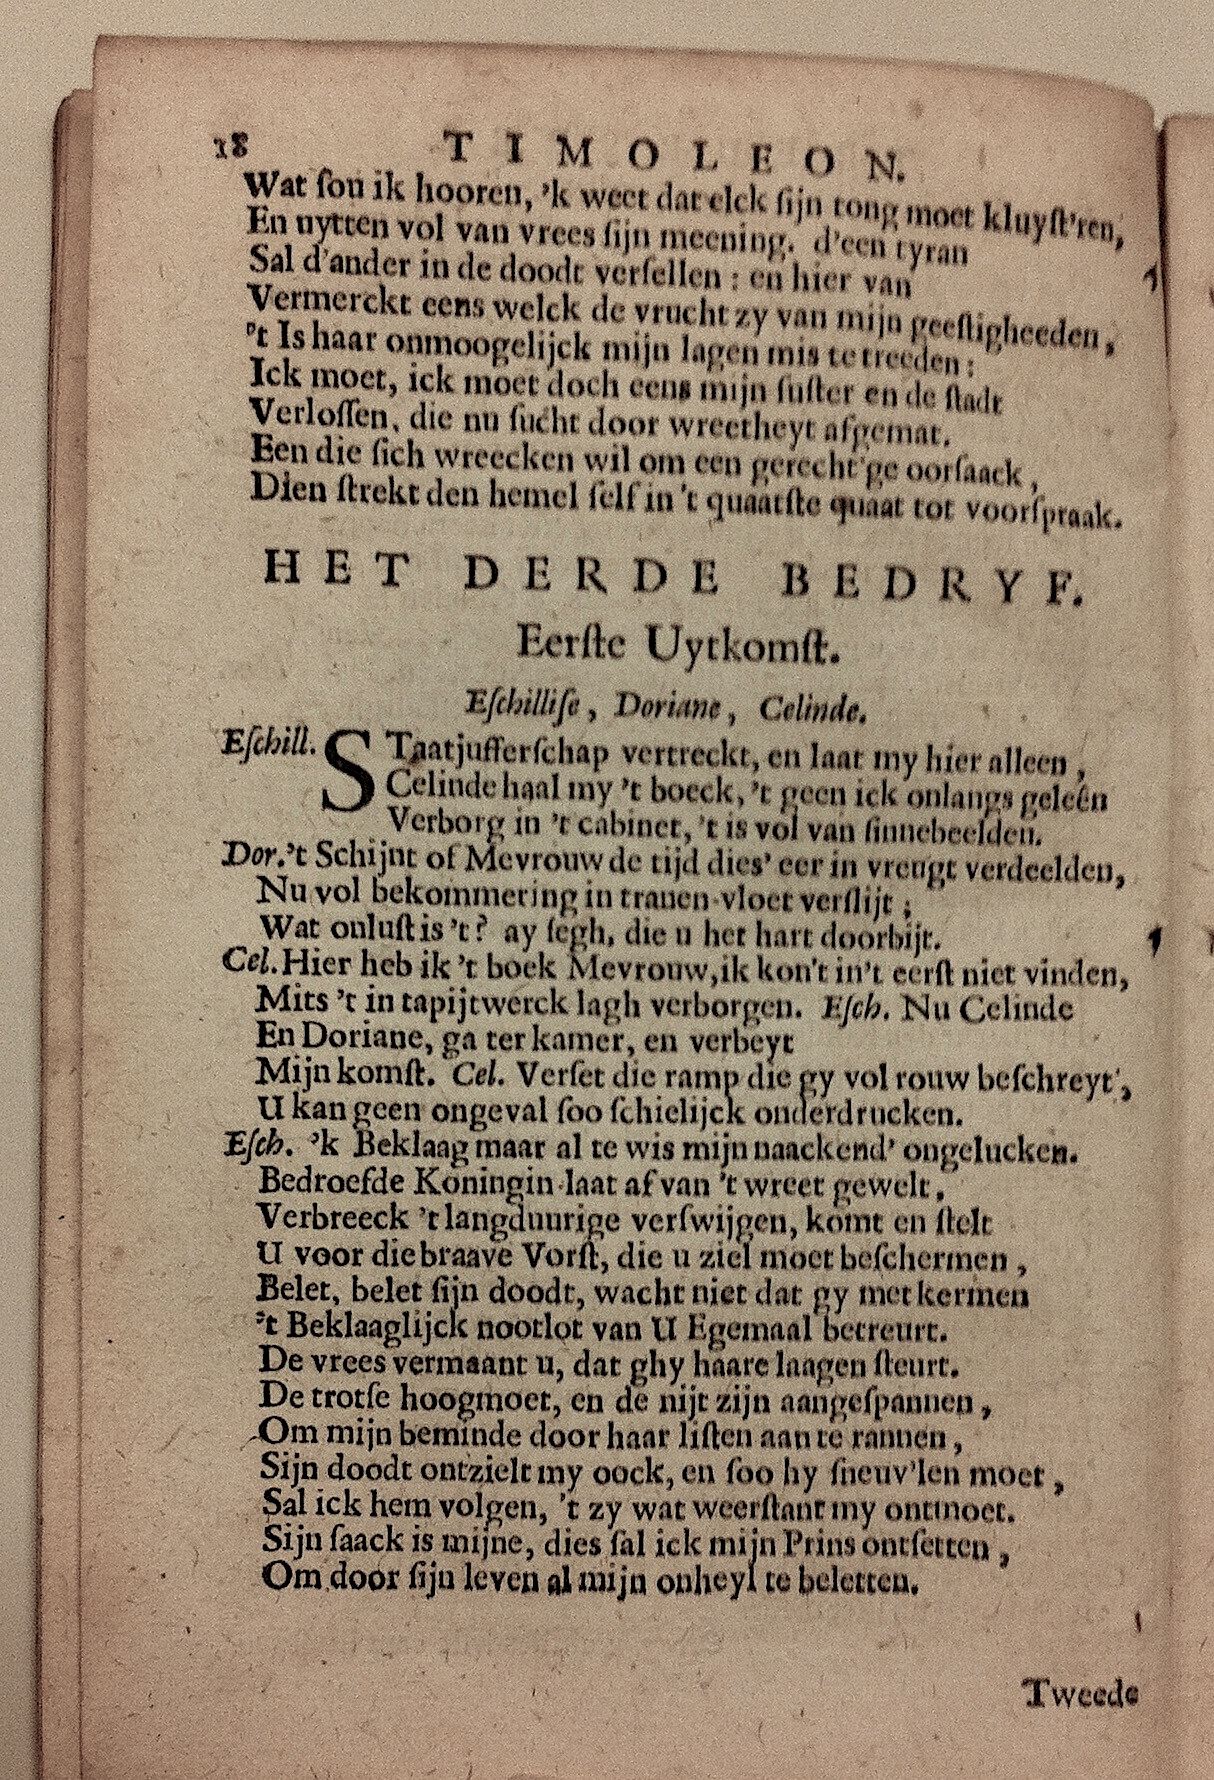 18 TIMOLEON.
Wat ſou ik hooren, 'k weet dat elck ſijn tong moet kluyſt'ren,
En uytten vol van vrees ſijn meening. d'een tyran
Sal d'ander in de doodt verſellen : en hier van
Vermerckt eens welck de vrucht zy van mijn geeſtigheeden,
't Is haar onmoogelijck mijn lagen mis te treeden :
Ick moet, ick moet doch eens mijn ſuſter en de ſtadt
Verloſſen, die nu ſucht door wreetheyt afgemat.
Een die ſich wreecken wil om een gerecht'ge oorſaack,
Dien ſtrekt den hemel ſelf in 't quaatſte quaat tot voorſpraak.
HET DERDE BEDRYF.
Eerſte Uytkomſt.
Eſchilliſe, Doriane, Celinde.
Eſchill. STaatjufferſchap vertreckt, en laat my hier alleen,
Celinde haal my 't boeck, 't geen ick onlangs geleên
Verborg in 't cabinet, 't is vol van ſinnebeelden.
Dor. 't Schijnt of Mevrouw de tijd dies' eer in vreugt verdeelden,
Nu vol bekommering in tranen-vloet verſlijt ;
Wat onluſt is 't? ay ſegh, die u het hart doorbijt.
Cel. Hier heb ik 't boek Mevrouw, ik kon't in't eerſt niet vinden,
Mits 't in tapijtwerck lagh verborgen. Eſch. Nu Celinde
En Doriane, ga ter kamer, en verbeyt
Mijn komſt. Cel. Verſet die ramp die gy vol rouw beſchreyt,
U kan geen ongeval ſoo ſchielijck onderdrucken.
Eſch. 'k Beklaag maar al te wis mijn naackend' ongelucken.
Bedroefde Koningin laat af van 't wreet gewelt,
Verbreeck 't langduurige verſwijgen, komt en ſtelt
U voor die braave Vorſt, die u ziel moet beſchermen,
Belet, belet ſijn doodt, wacht niet dat gy met kermen
't Beklaaglijck nootlot van U Egemaal betreurt.
De vrees vermaant u, dat ghy haare laagen ſteurt.
De trotſe hoogmoet, en de nijt zijn aangeſpannen,
Om mijn beminde door haar liſten aan te rannen,
Sijn doodt ontzielt my oock, en ſoo hy ſneuv'len moet,
Sal ick hem volgen, 't zy wat weerſtant my ontmoet.
Sijn ſaack is mijne, dies ſal ick mijn Prins ontſetten,
Om door ſijn leven al mijn onheyl te beletten.
Tweede